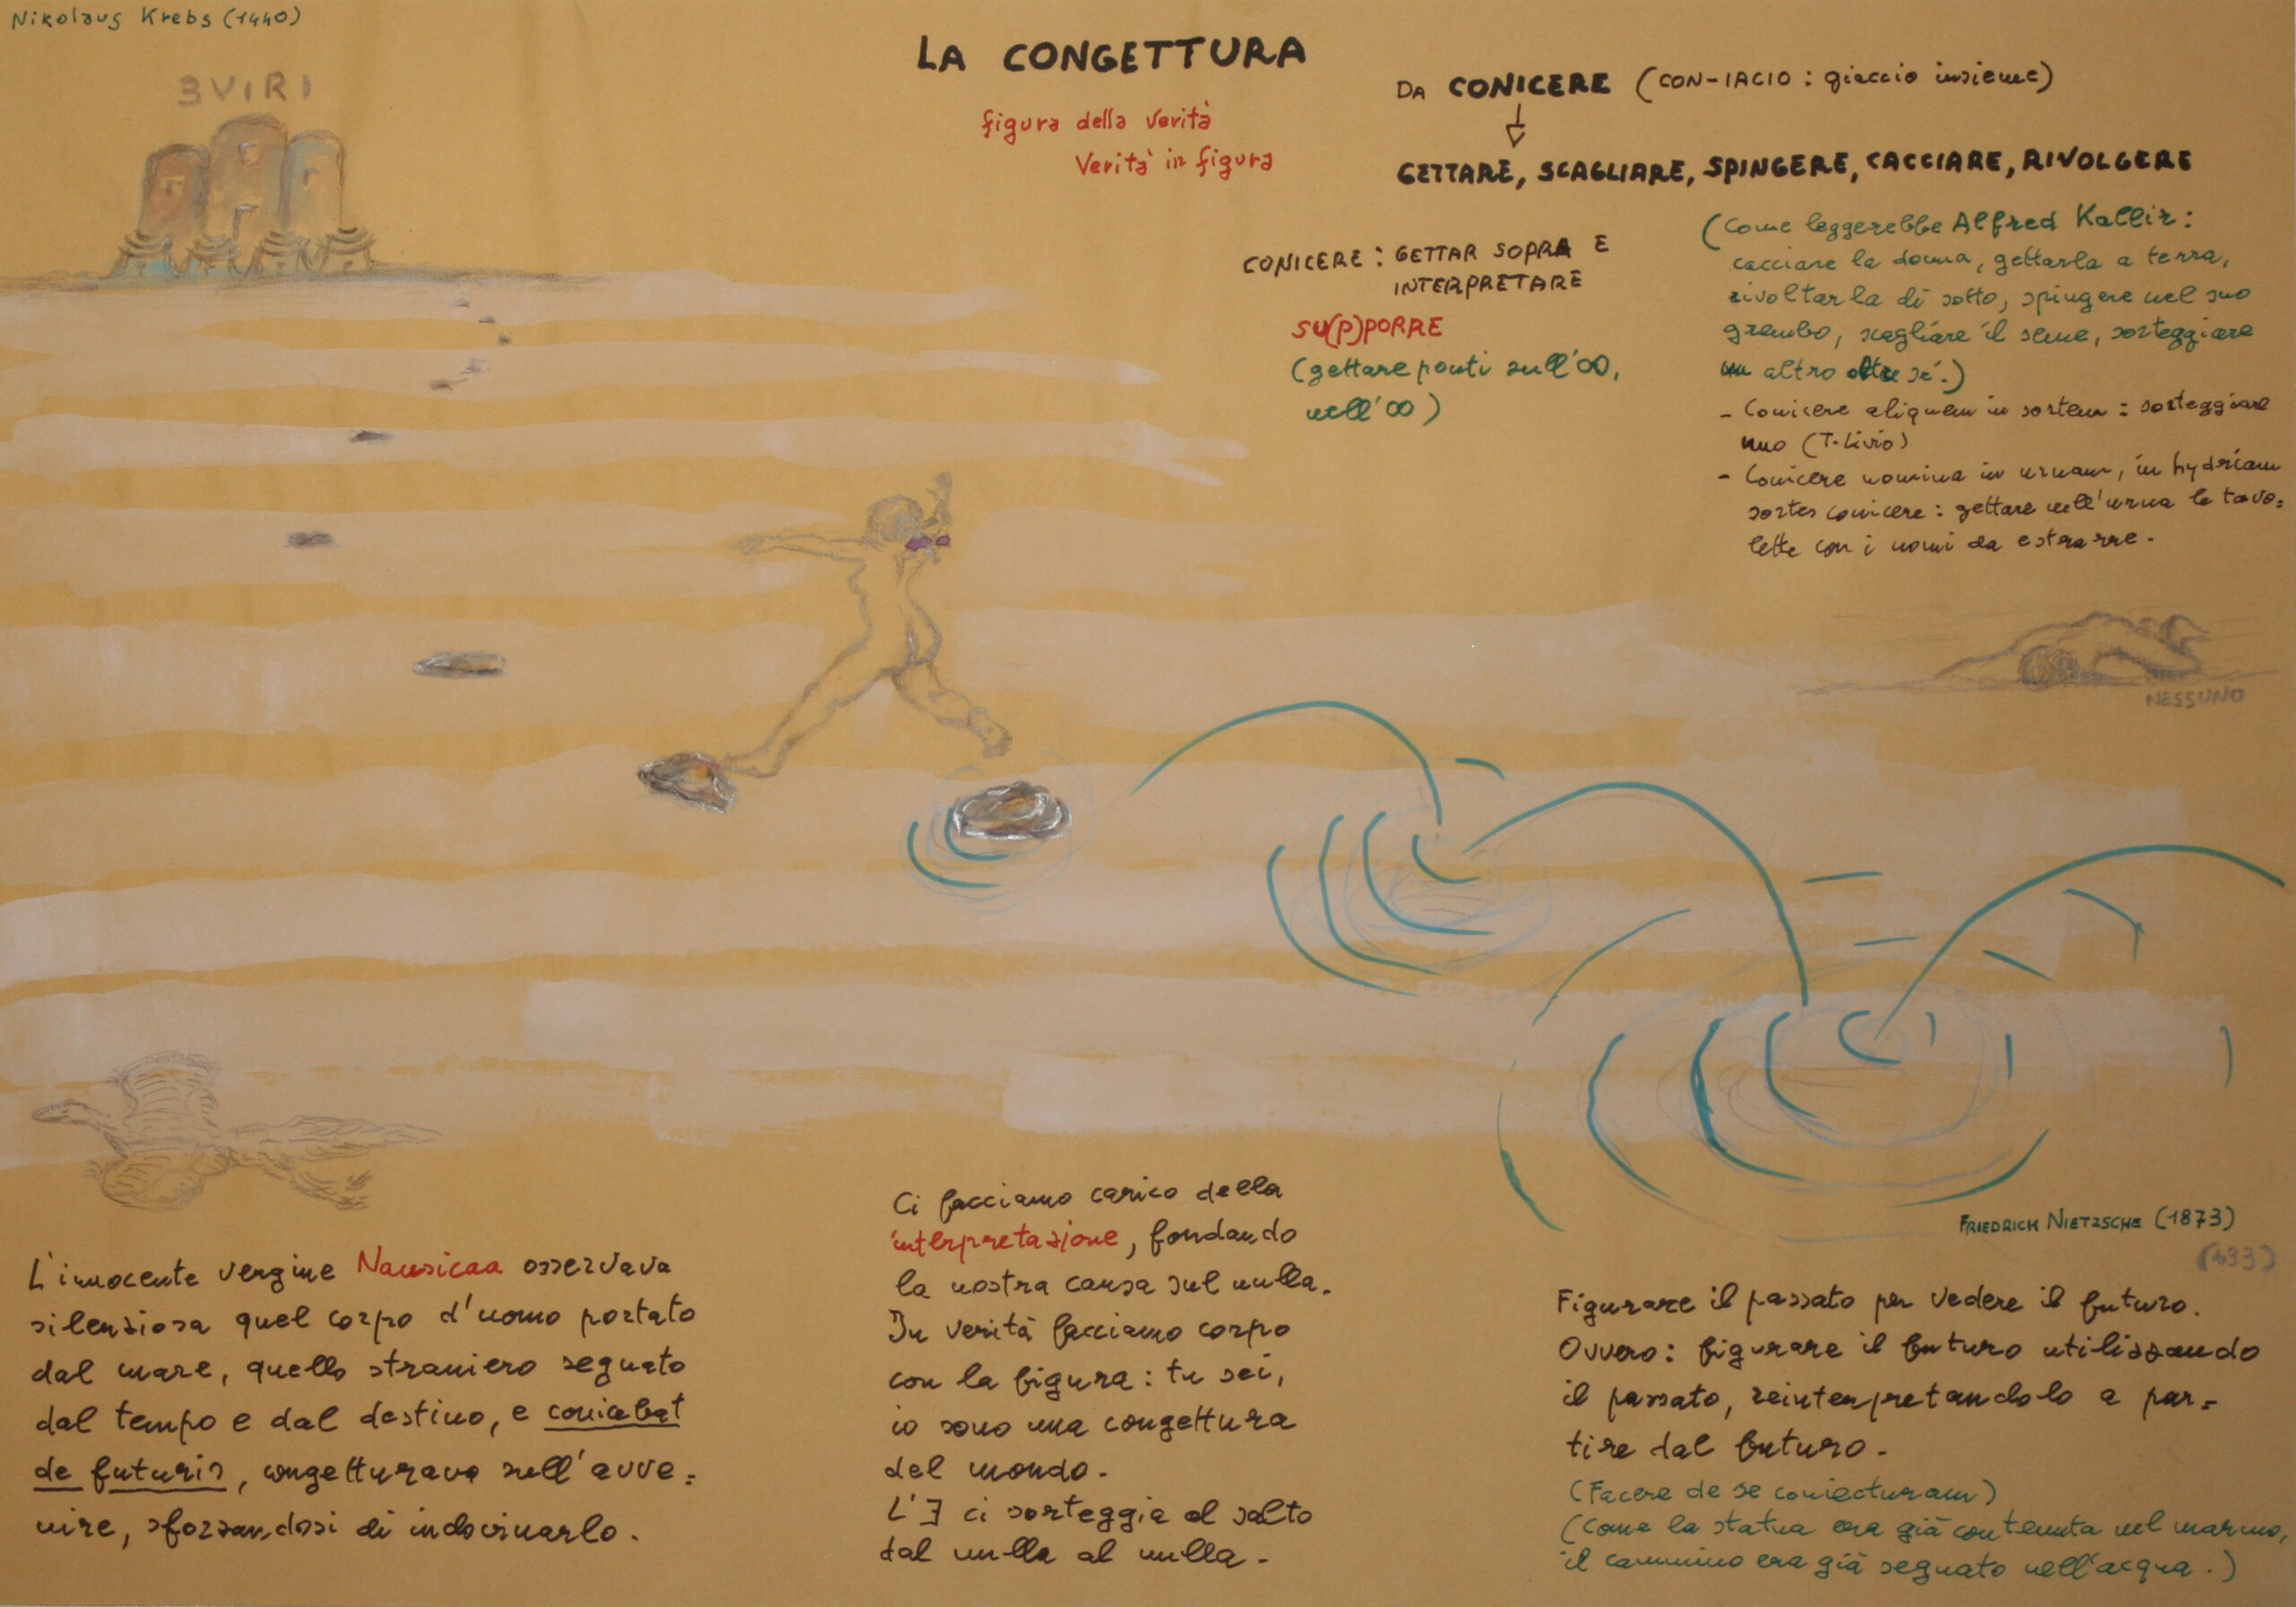 Nikolaus Krebs (1440)
3VIRI
LA CONGETTURA
figura della verità
Verità in figura
DA CONICERE (CON-IACIO : giaccio insieme)
GETTARE, SCAGLIARE, SPINGERE, CACCIARE, RIVOLGERE
CONICERE : GETTAR SOPRA E
INTERPRETARE
SU(P)PORRE
(gettare ponti sull'∞,
nell'∞)
(Come leggerebbe Alfred Kallir:
cacciare la donna, gettarla a terra,
rivoltarla di sotto, spingere nel suo
grembo, scagliare il seme, sorteggiare
un altro oltre sé.)
- Conicere aliquem in sortem : sorteggiare
uno (T. Livio)
- Conicere nomina in urnam, in hydriam
sortes conicere : gettare nell'urna le tavo=
lette con i nomi da estrarre.
NESSUNO
L'innocente vergine Nausicaa osservava
silenziosa quel corpo d'uomo portato
dal mare, quello straniero segnato
dal tempo e dal destino, e coniciebat
de futuris, congetturava sull'avve=
nire, sforzandosi di indovinarlo.
Ci facciamo carico della
interpretazione, fondando
la nostra causa sul nulla.
In verità facciamo corpo
con la figura : tu sei,
io sono una congettura
del mondo.
L'∃ ci sorteggia al salto
dal nulla al nulla.
FRIEDRICH NIETZSCHE (1873)
(433)
Figurare il passato per vedere il futuro.
Ovvero : figurare il futuro utilizzando
il passato, reinterpretandolo a par=
tire dal futuro.
(Facere de se coniecturam)
(Come la statua era già contenuta nel marmo,
il cammino era già segnato nell'acqua.)